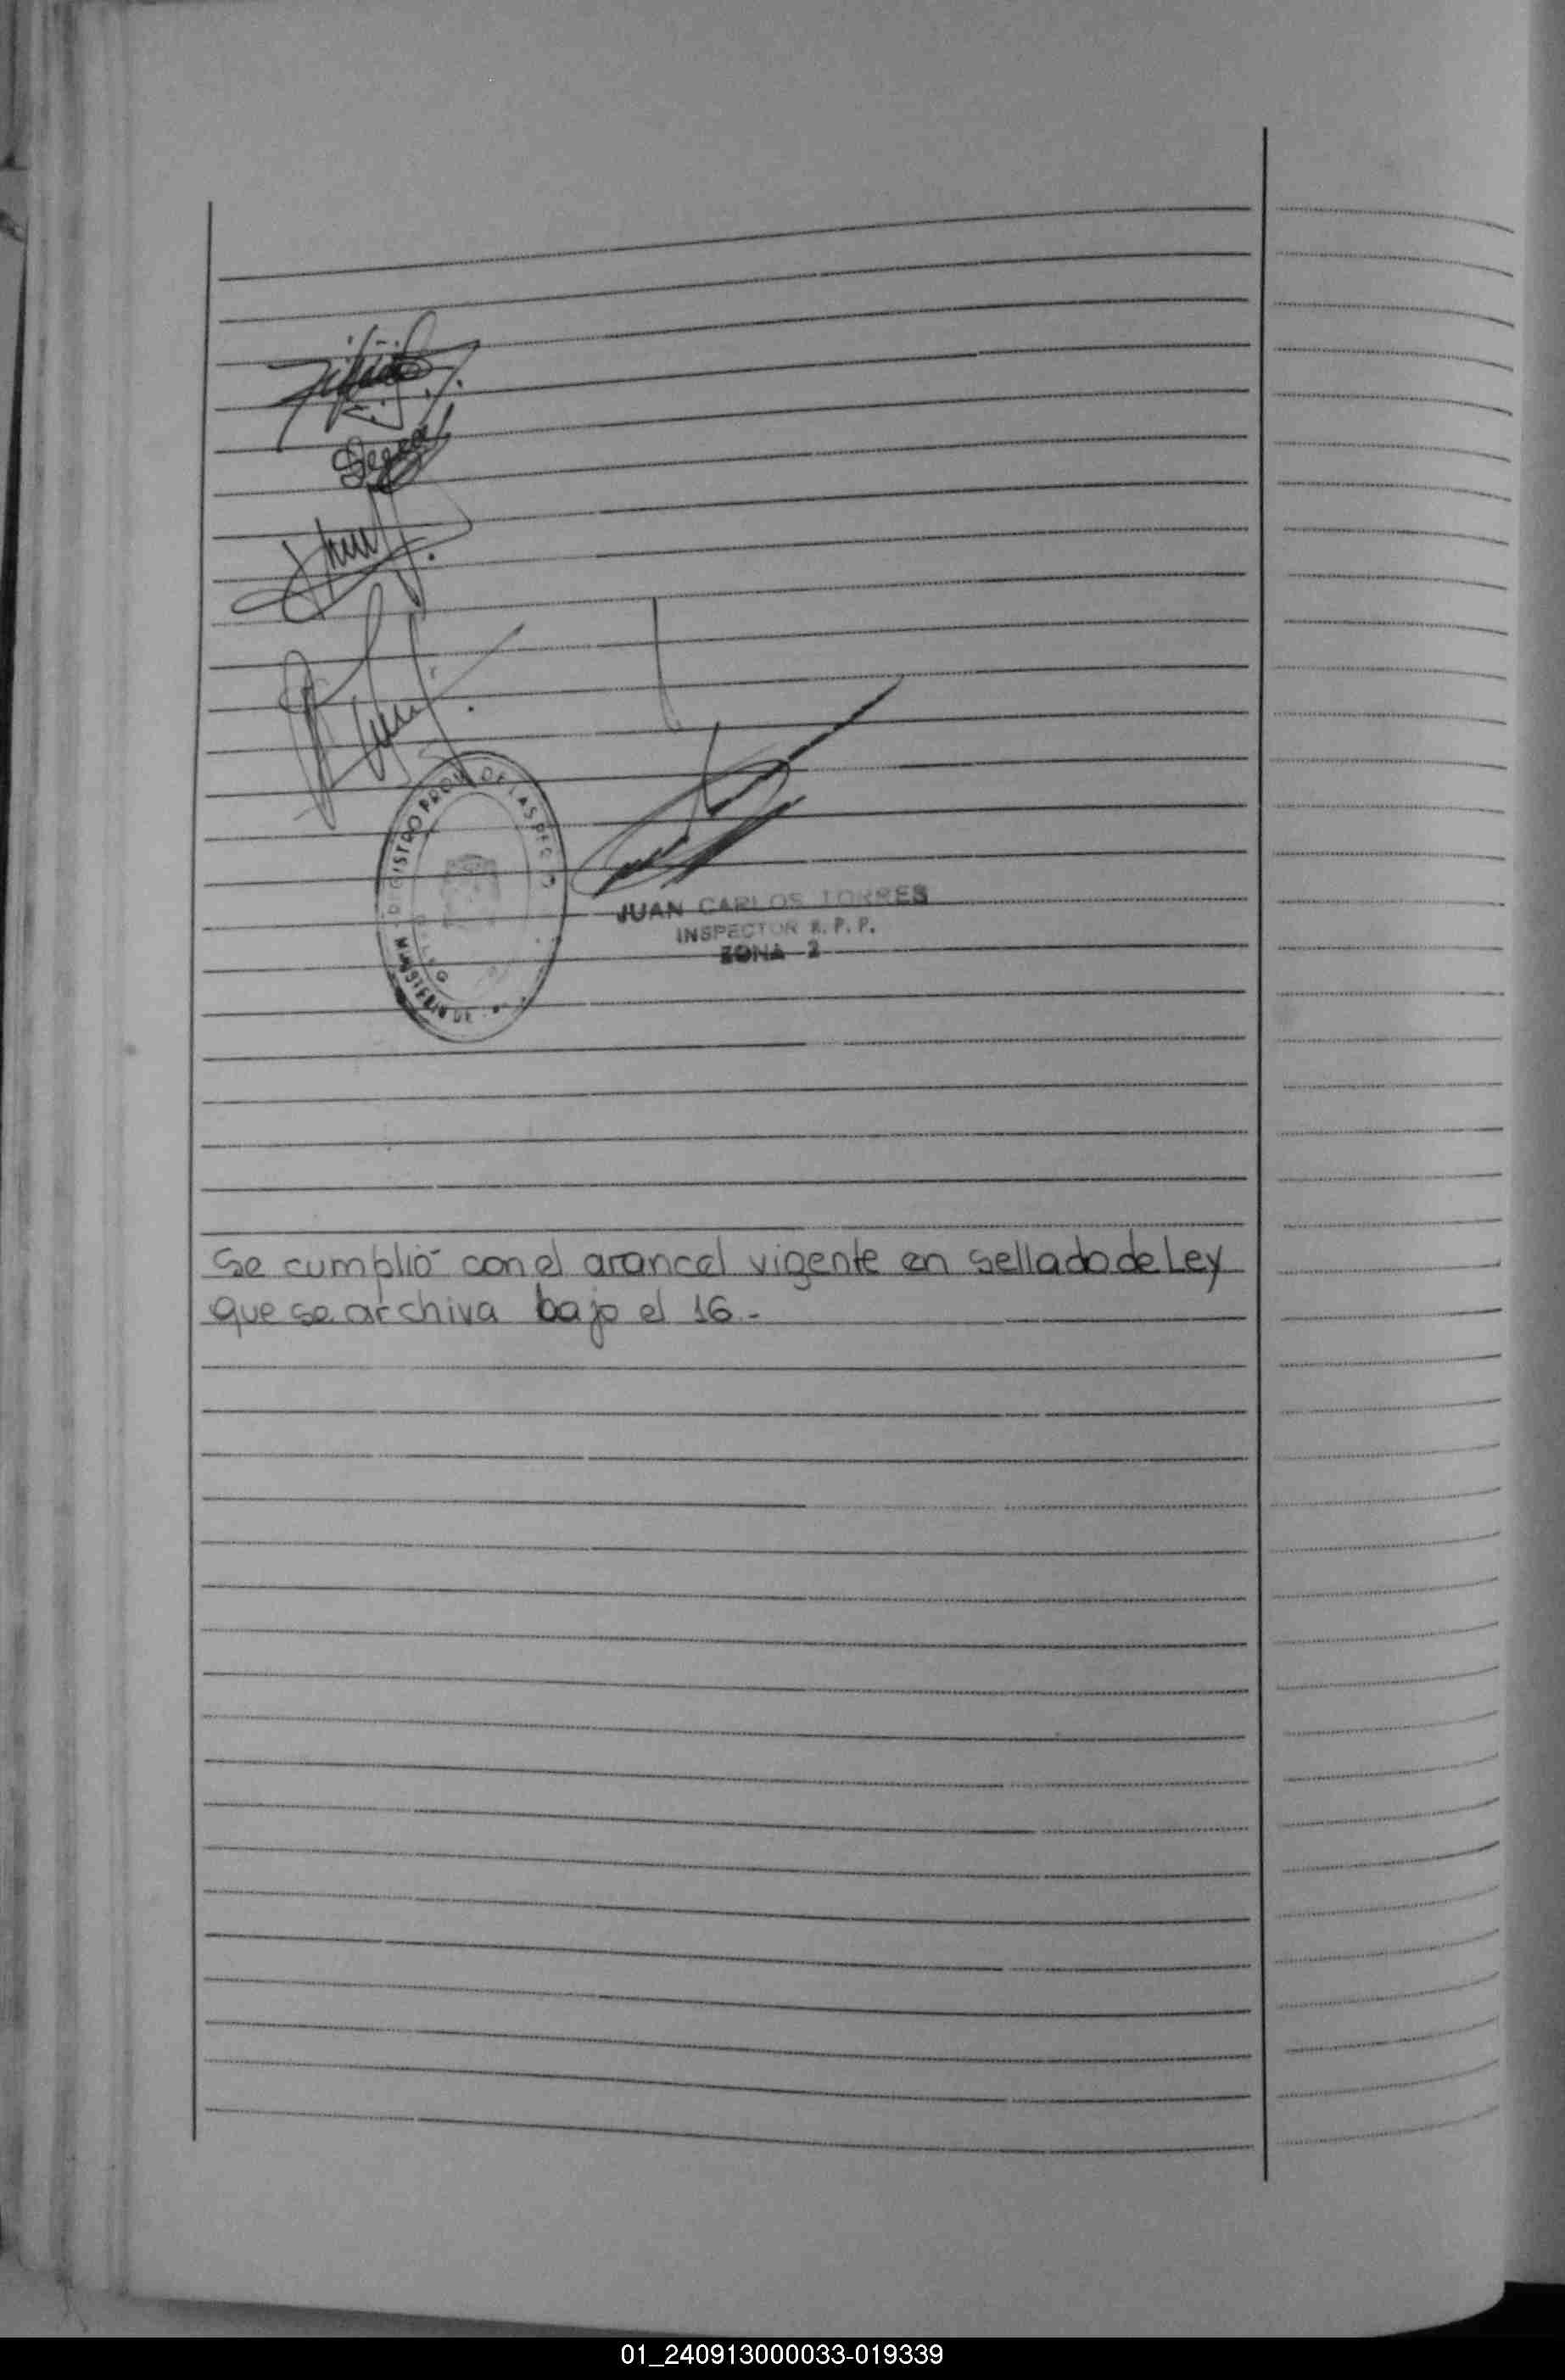 REGISTRO PROV. DE LAS PER
MINISTERIO DE
JUAN CARLOS TORRES
INSPECTOR R. P. P.
ZONA 2
Se cumplió con el arancel vigente en sellado de Ley
que se archiva bajo el 16.-
01_240913000033-019339